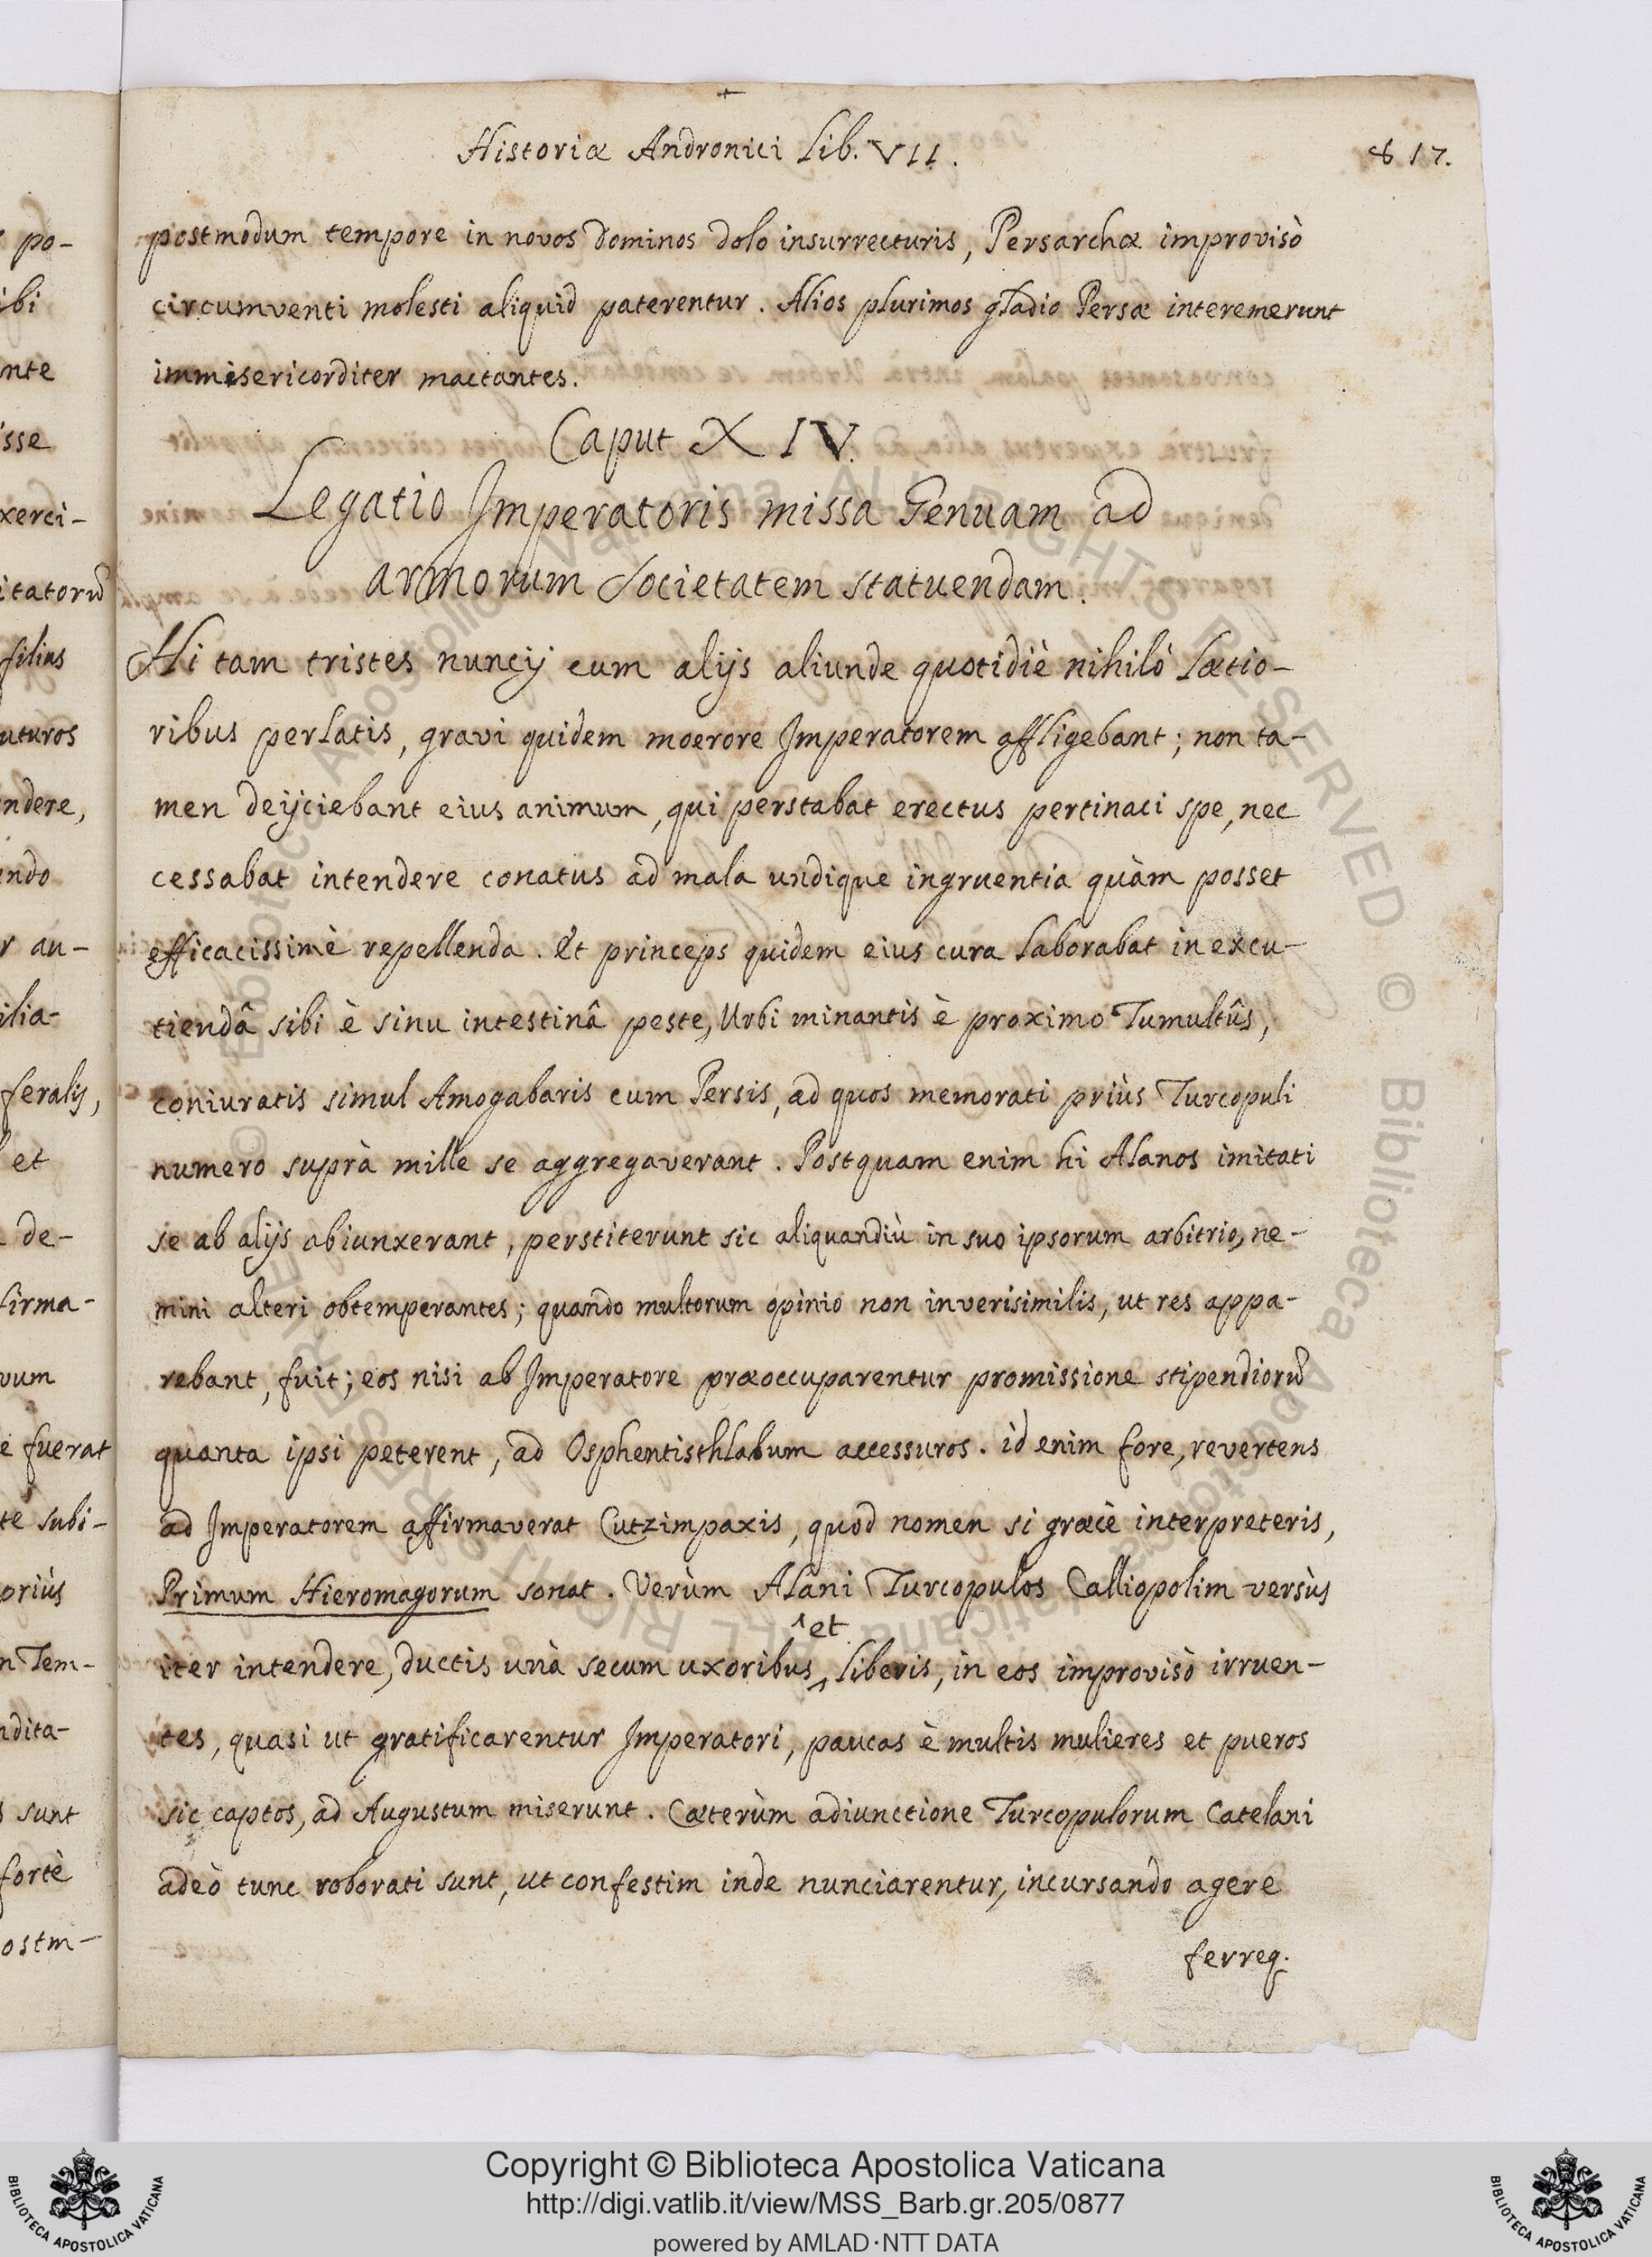 Historiæ Andronici Lib. VII.
817.
postmodum tempore in novos dominos dolo insurrecturis, Persarchæ improvisò
circumventi molesti aliquid paterentur. Alios plurimos gladio Persæ interemerunt
immisericorditer mactantes.
Caput XIV.
Legatio Imperatoris missa Genuam ad
armorum Societatem statuendam.
Hi tam tristes nuncij cum alijs aliunde quotidiè nihilò lætio-
ribus perlatis, gravi quidem moerore Imperatorem affligebant; non ta-
men deijciebant eius animum, qui perstabat erectus pertinaci spe, nec
cessabat intendere conatus ad mala undique ingruentia quàm posset
efficacissimè repellenda. Et princeps quidem eius cura laborabat in excu-
tiendâ sibi è sinu intestinâ peste, Urbi minantis è proximo Tumultûs,
coniuratis simul Amogabaris cum Persis, ad quos memorati priùs Turcopuli
numero suprà mille se aggregaverant. Postquam enim hi Alanos imitati
se ab alijs abiunxerant, perstiterunt sic aliquandiù in suo ipsorum arbitrio, ne-
mini alteri obtemperantes; quando multorum opinio non inverisimilis, ut res appa-
rebant, fuit; eos nisi ab Imperatore præoccuparentur promissione stipendiorũ
quanta ipsi peterent, ad Osphentisthlabum accessuros. id enim fore, revertens
ad Imperatorem affirmaverat Cutzimpaxis, quod nomen si græcè interpreteris,
Primum Hieromagorum sonat. Verùm Alani Turcopulos Calliopolim versùs
et
iter intendere, ductis unà secum uxoribus, liberis, in eos improvisò irruen-
tes, quasi ut gratificarentur Imperatori, paucas è multis mulieres et pueros
sic captos, ad Augustum miserunt. Cæterùm adiunctione Turcopulorum Catelani
adeò tunc roborati sunt, ut confestim inde nunciarentur, incursando agere
ferreq.
po-
ibi
nte
isse
xerci-
itatorũ
filius
uturos
ndere,
endo
r au-
ilia-
feralis,
et
de-
firma-
vum
e fuerat
te subi-
priùs
n Tem-
ndita-
s sunt
fortè
ostm-
Copyright © Biblioteca Apostolica Vaticana
http://digi.vatlib.it/view/MSS_Barb.gr.205/0877
powered by AMLAD·NTT DATA
BIBLIOTECA APOSTOLICA VATICANA
BIBLIOTECA APOSTOLICA VATICANA
© Biblioteca Apostolica Vaticana ALL RIGHTS RESERVED © Biblioteca Apostolica Vaticana ALL RIGHTS RESERVED